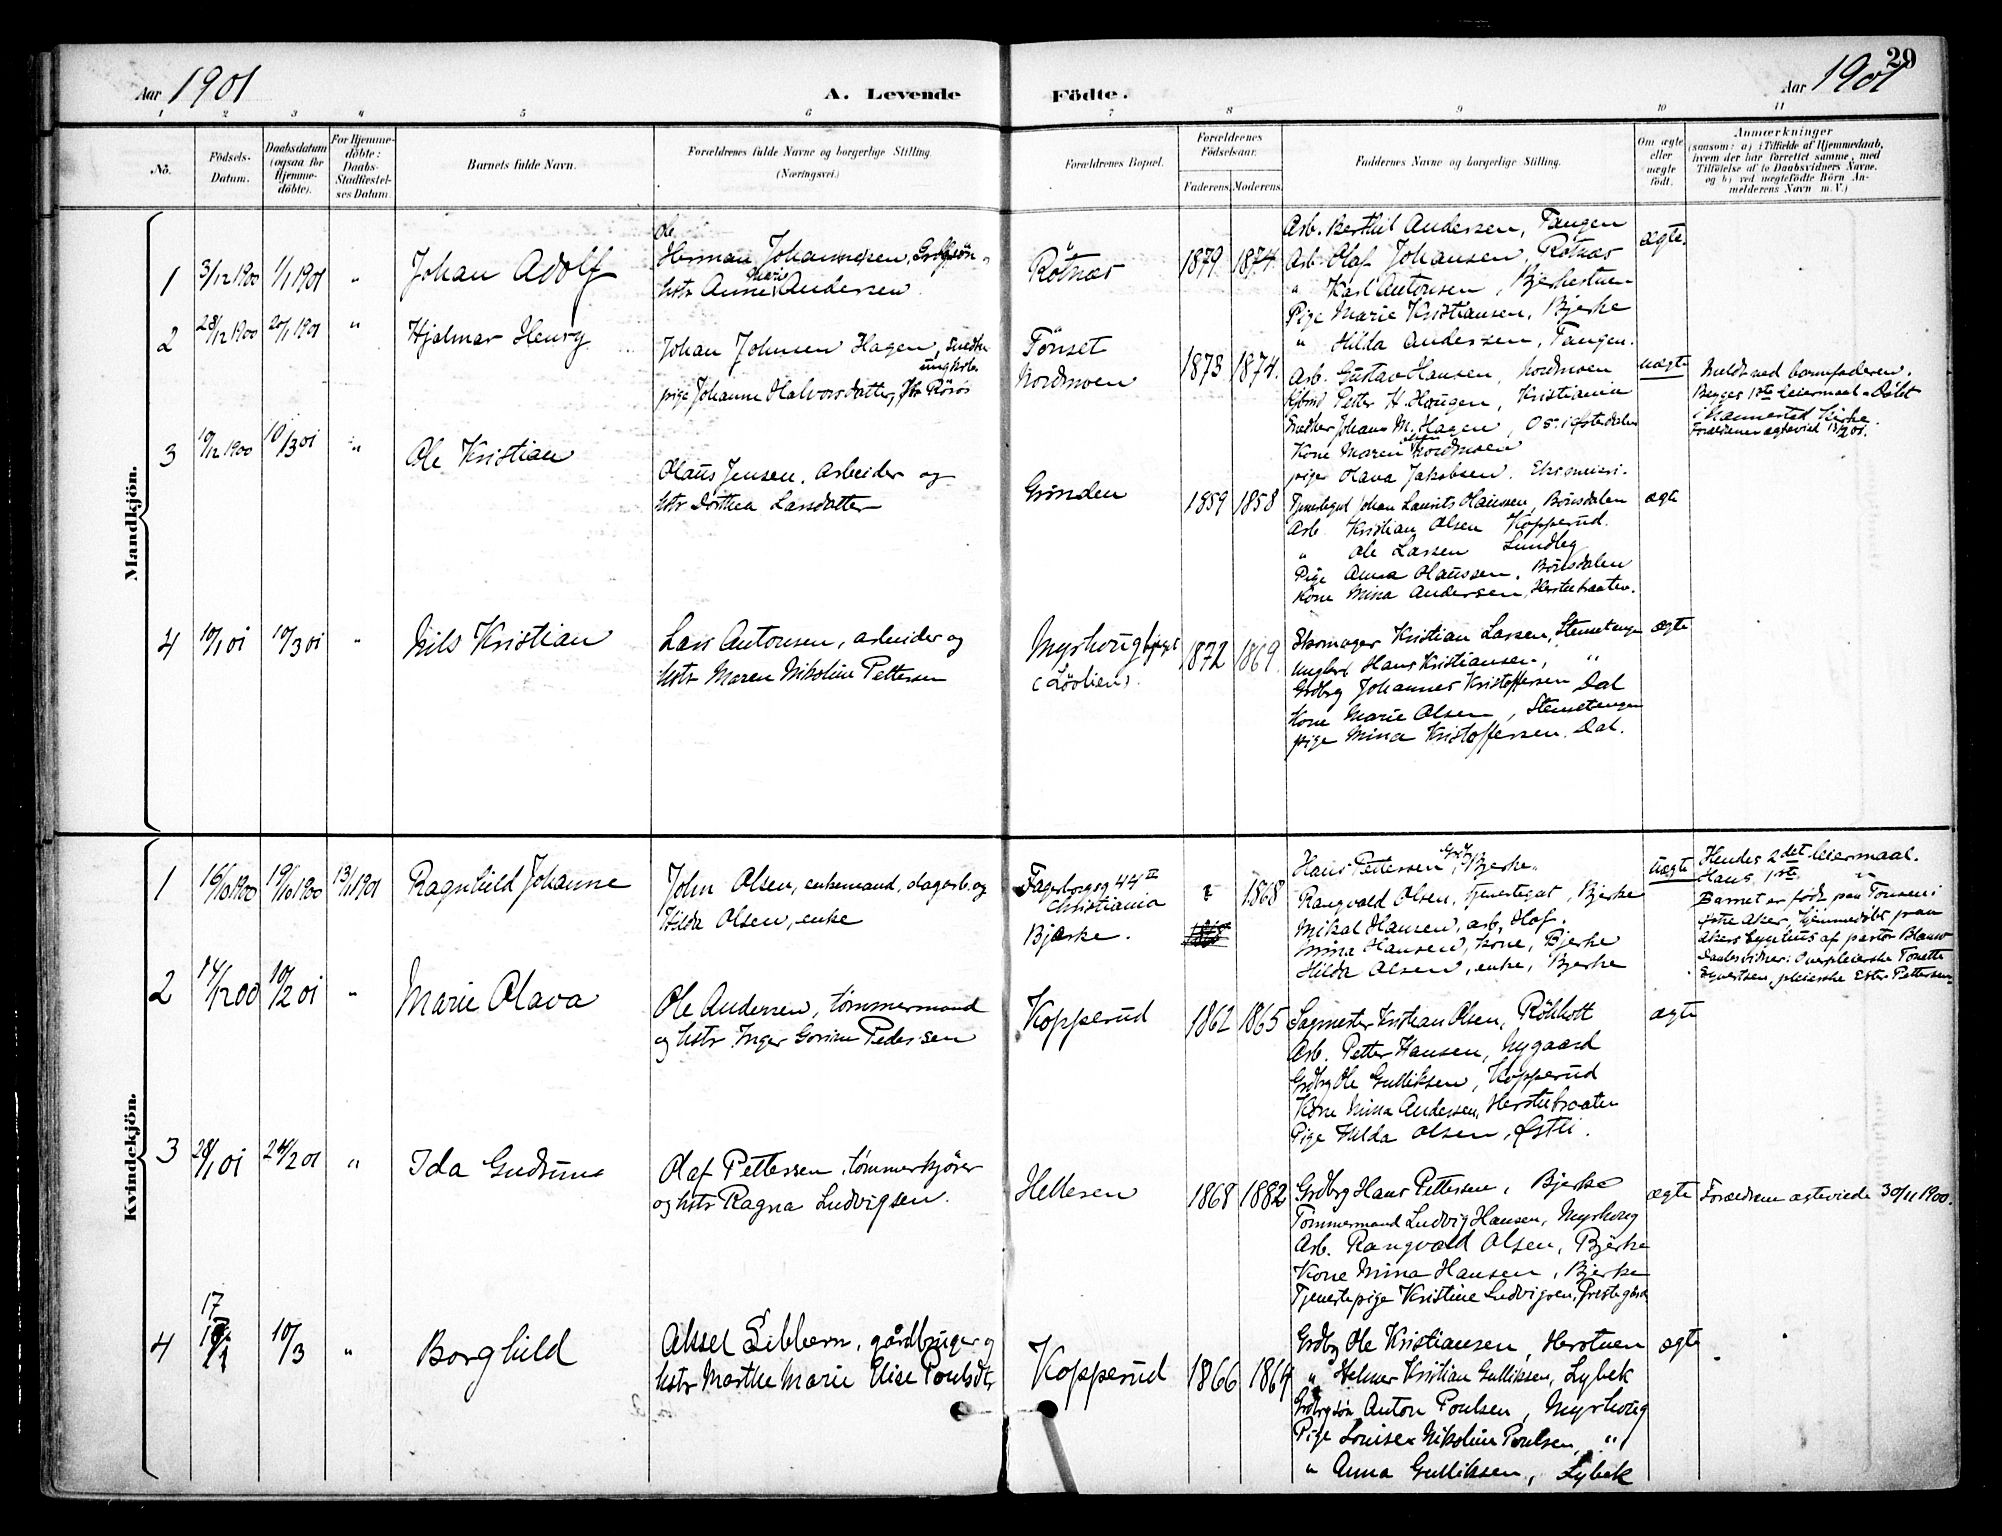 Aar 1901
A. Levende Födte.
Aar 1901
29
1 2 3 4 5 6 7 8 9 10 11
No.
Födsels-Datum.
Daabsdatum (ogsaa for Hjemmedöbte).
For Hjemmedöbte: Daabs-Stadfæstelses Datum.
Barnets fulde Navn.
Forældrenes fulde Navne og borgerlige Stilling. (Næringsvei.)
Forældrenes Bopæl.
Forældrenes Födselsaar.
Faderens. Moderens.
Faddernes Navne og borgerlige Stilling.
Om ægte eller uægte födt.
Anmærkninger
(saasom: a) i Tilfælde af Hjemmedaab, hvem der har forrettet samme, med Tilföielse af to Daabsvidners Navne. og b) ved uægtefödte Börn Anmelderens Navn m. V.)
Mandkjön.
1 3/12 1900 1/1 1901 " Johan Adolf
Ole
Herman Johannesen,
Marie
hstr Anne Andersen
Rötnæs 1879 1874
Arb. Berthil Andersen, Tangen
Arb. Olaf Johansen, Rötnæs
" Karl Antonsen, Bjerkestuen
Pige Marie Kristiansen, Bjerke
" Hilda Andersen, Tangen.
ægte.
2 28/12 1900 20/1 1901 " Hjalmar Henry
Johan Johnsen Hagen, snedker ungkarl
pige Johanne Halvorsdatter, Röros
Tönset
Nordmoen
1873 1874.
Arb. Gustav Hansen, Nordmoen
Petter H. Haugen, Kristiania
Snedker Johans M. Hagen, Os i Østerdalen
Kone Maren Nordmoen
pige Olava Jakobsen.
uægte
Meldt ved barnefaderen.
Begges 1ste Leiermaal. Döbt
i Kirke.
Forældrene ægteviet
3 19/12 1900 10/3 01 " Ole Kristian
Olaus Jensen, arbeider og
hstr Dorthea Larsdatter
Grinden 1859 1858
Tjenestegut Johan Laurits Olaussen, Brönsdalen
Arb. Kristian Olsen Kopperud.
" Ole Larsen Lundby
Pige Anna Olaussen, Brönsdalen
Kone Mina Andersen, Herstubraaten.
ægte
4 10/1 01 10/3 01 " Nils Kristian
Lars Antonsen, arbeider og
hstr Maren Nikoline Pettersen
Myrhoug
(Lövlien).
1872 1869.
Skomager Kristian Larsen, Stenstangen
Ungkarl Hans Kristiansen, "
Grdbrg Johannes Kristoffersen Dal
Kone Marie Olsen, Stenstangen
pige Mina Kristoffersen. Dal.
ægte
Kvindekjön.
1 16/10 1900 19/10 1900 13/1 1901 Ragnhild Johanne
John Olsen, enkemand, dagarb. og
Hilda Olsen, enke
Fagerborgg 44 II
Christiania
Bjerke.
? 1868
Hans Pettersen, Grdbr, Bjerke.
Rangvald Olsen, tjenestegut, Bjerke
Mikal Hansen, arb, Hof.
Mina Hansen, kone, Bjerke
Hilda Olsen, enke, Bjerke
uægte
Hendes 2det leiermaal.
Hans 1ste "
Barnet er födt paa Tonsen i
Østre Aker, hjemmedöbt paa
Akers Sygehus af pastor
Daabsvidner: Overpleierske Tonette
Syvertsen, pleierske Ester Pettersen
2 14/12 00 10/2 01 " Marie Olava
Ole Andersen, tömmermand
og hstr Inger Gorine Pedersen
Kopperud 1862 1865
Sagmester Kristian Olsen, Röhholt
Arb. Petter Hansen, Nygaard
Grdbrg Ole Gulliksen, Kopperud
Kone Mina Andersen, Herstubraaten
Pige Hilda Olsen, Østli.
ægte
3 28/1 01 24/2 01 " Ida Gudrune
Olaf Pettersen, tömmerkjörer
og hstr Ragna Ludvigsen.
Hellesen 1868 1882
Grdbrg Hans Pettersen, Bjerke
Tömmermand Ludvig Hansen, Myrhoug
Arb. Rangvald Olsen, Bjerke
Kone Mina Hansen, Bjerke
Tjenestepige Kristine Ludvigsen,
ægte
Forældrene ægteviede 30/11 1900.
4 17/1 10/3 " Borghild
Aksel Sibbern, gårdbruger og
hstr Marthe Marie Elise Poulsdtr
Kopperud 1866 1864
Grdbrg Ole Kristiansen, Herstuen
" Helmer Kristian Gulliksen, Lybek
Grdbrgsön Anton Poulsen, Myrhoug
Pige Louise Nikoline Poulsen, "
" Anna Gulliksen, Lybek
ægte